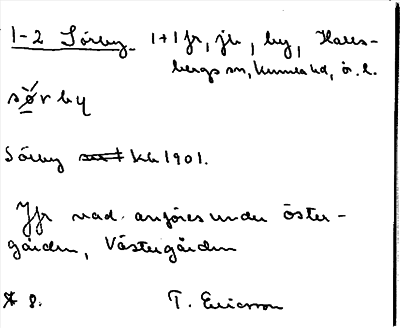 1-2 Sörby. 1+1 fr, jb, by, Halls-
bergs sn, Kumla hd, ör. l.
sørby
Sörby kb 1901.
Jfr vad. anföres under öster-
gården, Västergården
8. T. Ericsson